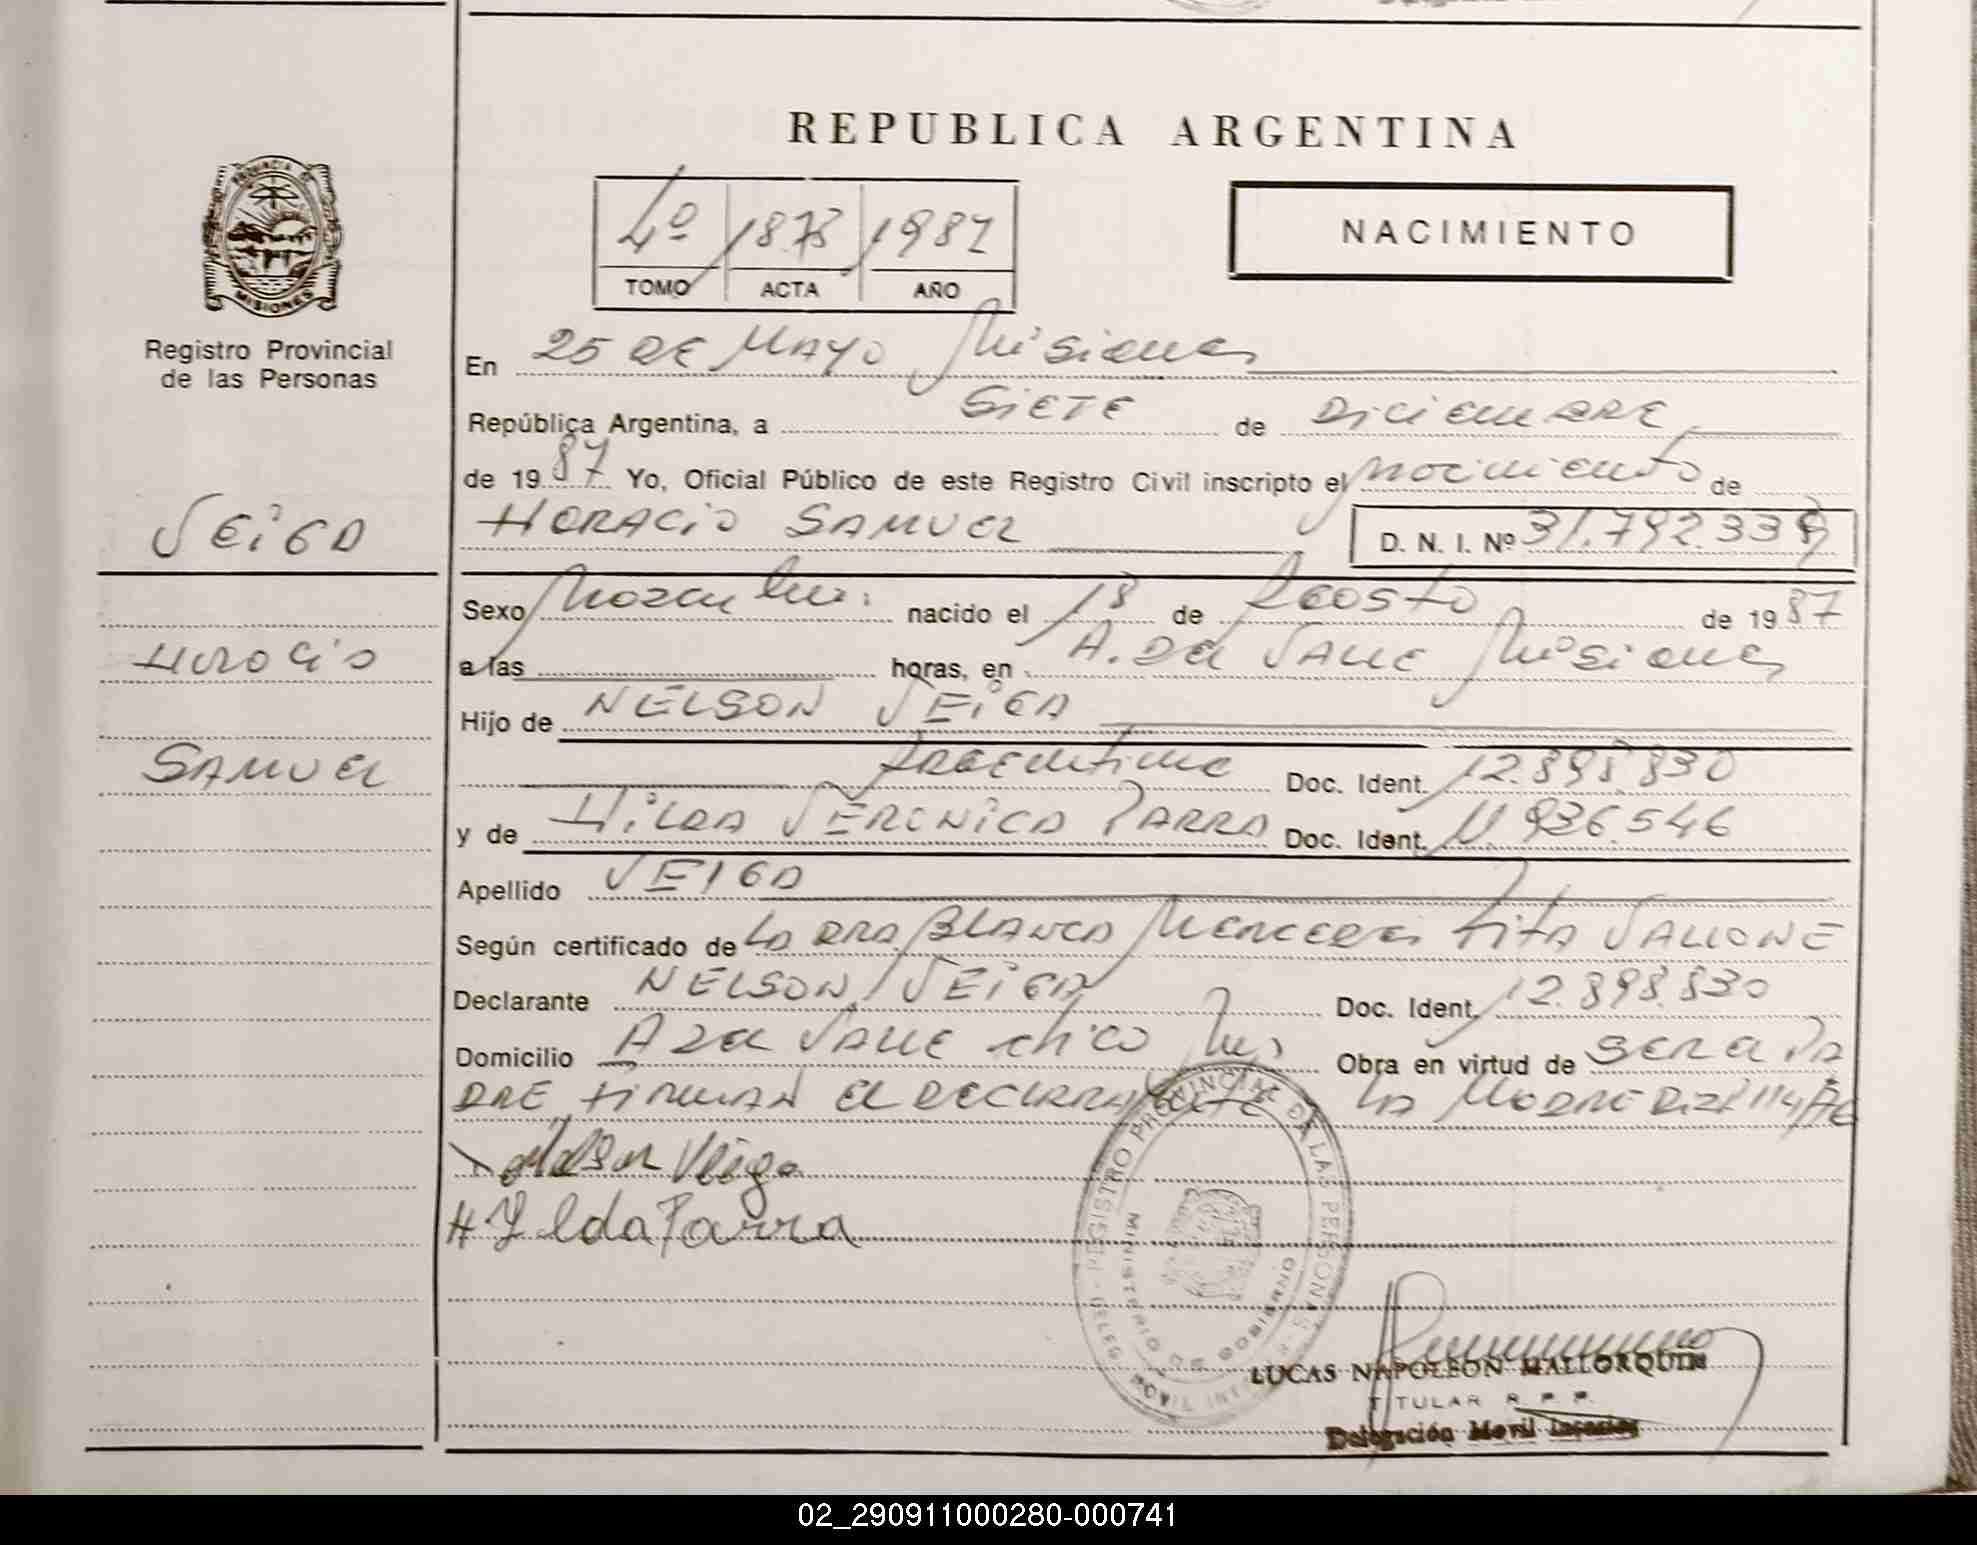 REPUBLICA ARGENTINA
PROVINCIA DE MISIONES
Registro Provincial
de las Personas
4º 1873 1987
TOMO ACTA AÑO
NACIMIENTO
En 25 DE MAYO Misiones
República Argentina, a SIETE de DICIEMBRE
de 1987 Yo, Oficial Público de este Registro Civil inscripto el nacimiento de
VEIGA
HORACIO SAMUEL D. N. I. Nº 31.792.339
Sexo Masculino nacido el 18 de Agosto de 1987
Horacio
a las horas, en A. DEL VALLE Misiones
Hijo de NELSON VEIGA
SAMUEL
Argentino Doc. Ident. 12.898.830
y de HILDA VERONICA PARRA Doc. Ident. 936.546
Apellido VEIGA
Según certificado de LA DRA. BLANCA MERCEDES RITA VALLONE
Declarante NELSON VEIGA Doc. Ident. 12.898.830
Domicilio A DEL VALLE CHICO Mis Obra en virtud de SER EL PA
DRE FIRMAN EL DECLARANTE LA MADRE
Nelson Veiga
Hilda Parra
REGISTRO PROVINCIAL DE LAS PERSONAS
MINISTERIO DE GOBIERNO
LUCAS NAPOLEON MALLORQUIN
TITULAR R. P. P.
Delegación Movil
02_290911000280-000741